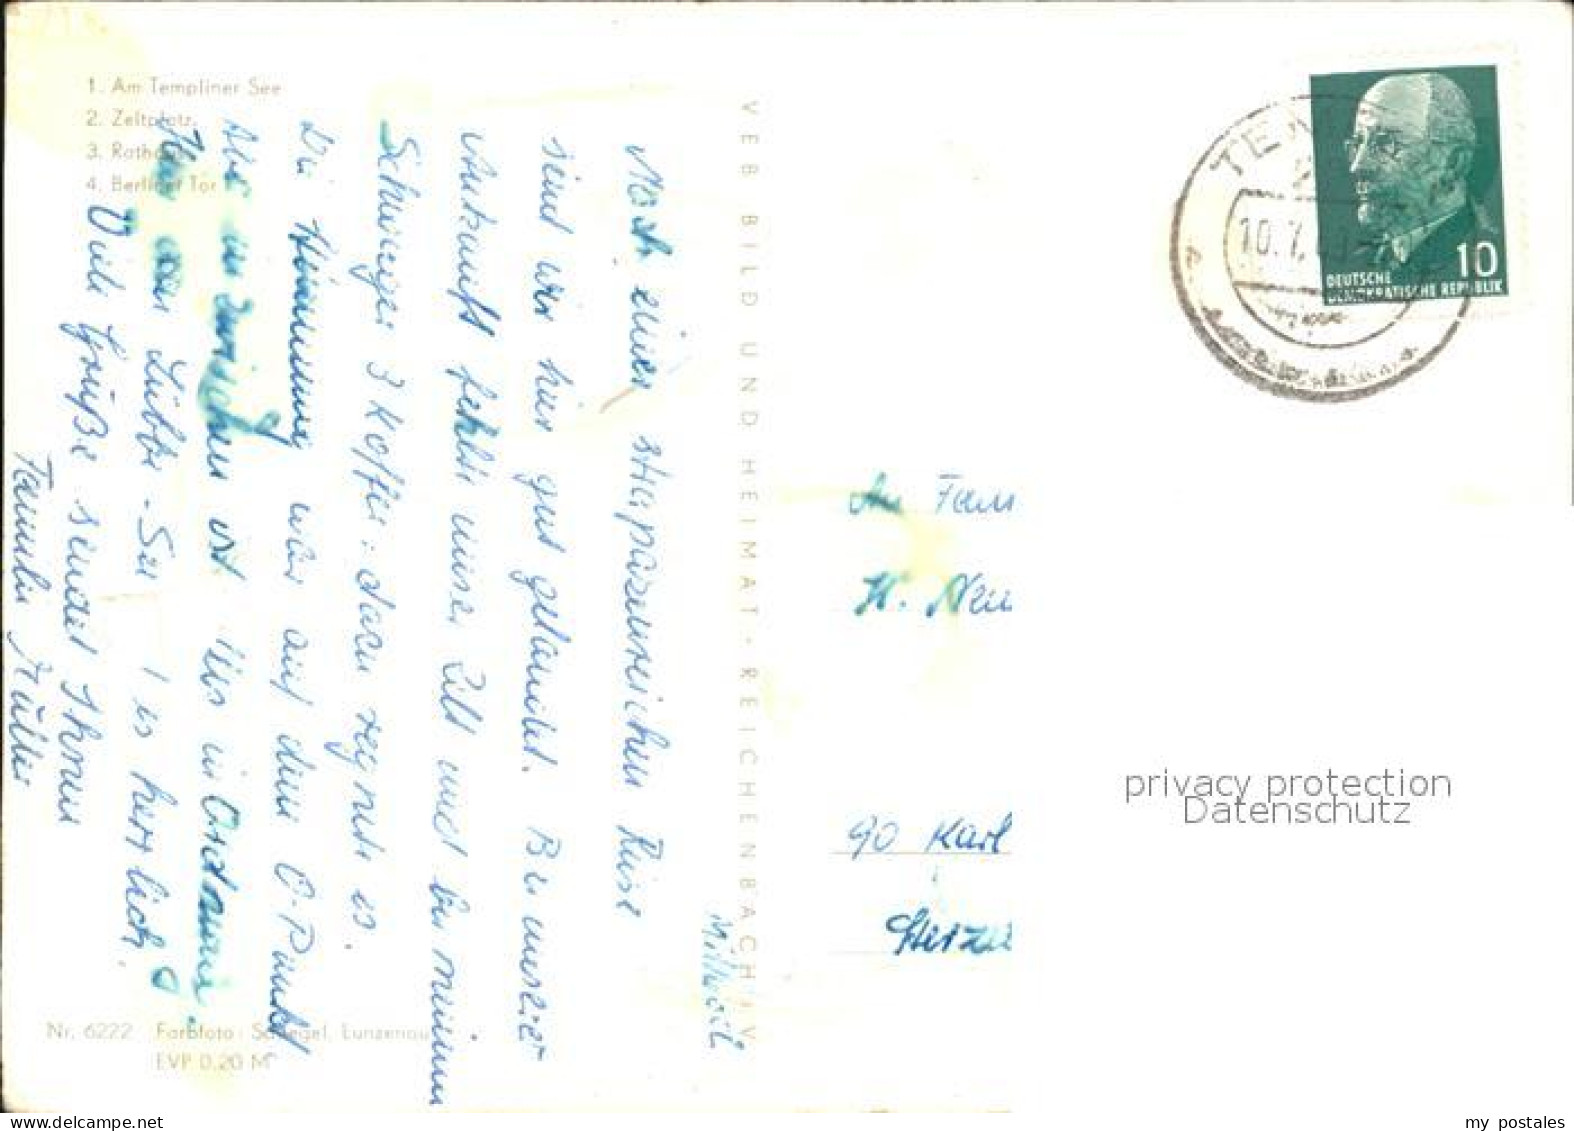 1. Am Templiner See
2. Zeltplatz
3. Rathaus
4. Berliner Tor
Mittwoch
Nach einer strapazenreichen Reise
sind wir hier gut gelandet. Bei unserer
Ankunft fehlte unser Zelt und bei meinem
Schwager 3 Koffer. dazu regnete es.
Die Stimmung war auf dem 0-Punkt
Aber inzwischen ist alles in Ordnung.
Hier am Lübbe-See ist es herrlich.
Viele Grüße sendet Ihnen
Familie Müller
VEB BILD UND HEIMAT · REICHENBACH i. V.
Nr. 6222 Farbfoto: Schlegel, Lunzenau
EVP 0,20 M
TEM
10.7.
10
DEUTSCHE
DEMOKRATISCHE REPUBLIK
An Fam
H. Neu
90 Karl
privacy protection
Datenschutz
my postales